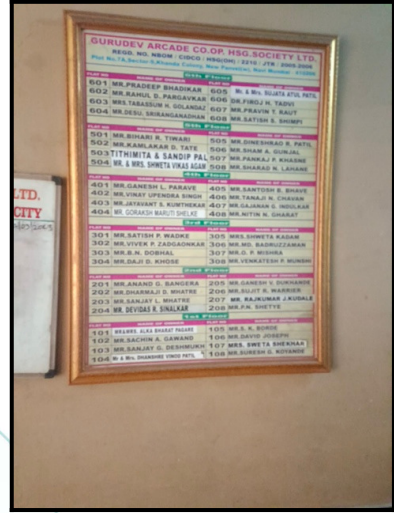 GURUDEV ARCADE CO.OP. HSG.SOCIETY LTD.
REGD. NO. NBOM / CIDCO / HSG(OH) / 2210 / JTR / 2005-2006
Plot No.7A, Sector-9, Khanda Colony, New Panvel(w), Navi Mumbai - 410206
6th Floor
FLAT NO NAME OF OWNER FLAT NO NAME OF OWNER
601 MR.PRADEEP BHADIKAR 605 Mr. & Mrs. SUJATA ATUL PATIL
602 MR.RAHUL D. PARGAVKAR 606 DR.FIROJ H. TADVI
603 MRS.TABASSUM H. GOLANDAZ 607 MR.PRAVIN T. RAUT
604 MR.DESU. SRIRANGANADHAN 608 MR.SATISH S. SHIMPI
5th Floor
FLAT NO NAME OF OWNER FLAT NO NAME OF OWNER
501 MR.BIHARI R. TIWARI 505 MR.DINESHRAO R. PATIL
502 MR.KAMLAKAR D. TATE 506 MR.SHAM A. GUNJAL
503 TITHIMITA & SANDIP PAL 507 MR.PANKAJ P. KHASNE
504 MR. & MRS. SHWETA VIKAS AGAM 508 MR.SHARAD N. LAHANE
4th Floor
FLAT NO NAME OF OWNER FLAT NO NAME OF OWNER
401 MR.GANESH L. PARAVE 405 MR.SANTOSH E. BHAVE
402 MR.VINAY UPENDRA SINGH 406 MR.TANAJI N. CHAVAN
403 MR.JAYAVANT S. KUMTHEKAR 407 MR.GAJANAN G. INDULKAR
404 MR. GORAKSH MARUTI SHELKE 408 MR.NITIN N. GHARAT
3rd Floor
FLAT NO NAME OF OWNER FLAT NO NAME OF OWNER
301 MR.SATISH P. WADKE 305 MRS.SHWETA KADAM
302 MR.VIVEK P. ZADGAONKAR 306 MR.MD. BADRUZZAMAN
303 MR.B.N. DOBHAL 307 MR.O. P. MISHRA
304 MR.DAJI D. KHOSE 308 MR.VENKATESH P. MUNSHI
2nd Floor
FLAT NO NAME OF OWNER FLAT NO NAME OF OWNER
201 MR.ANAND G. BANGERA 205 MR.GANESH V. DUKHANDE
202 MR.DHARMAJI D. MHATRE 206 MR.SUJIT R. WARRIER
203 MR.SANJAY L. MHATRE 207 MR. RAJKUMAR J.KUDALE
204 MR. DEVIDAS R. SINALKAR 208 MR.P.N. SHETYE
1st Floor
FLAT NO NAME OF OWNER FLAT NO NAME OF OWNER
101 MR&MRS. ALKA BHARAT PAGARE 105 MR.S. K. BORDE
102 MR.SACHIN A. GAWAND 106 MR.DAVID JOSEPH
103 MR.SANJAY G. DESHMUKH 107 MRS. SWETA SHEKHAR
104 Mr & Mrs. DHANSHREE VINOD PATIL 108 MR.SURESH G. KOYANDE
LTD.
CITY